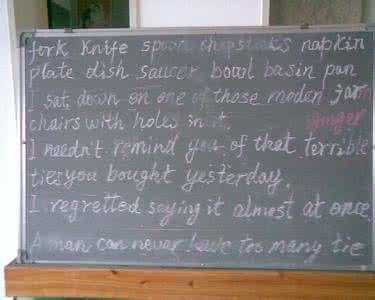 fork knife spoon chopsticks napkin
plate dish saucer bowl basin pan
I sat down on one of those moden
chairs with holes in it. finger
I needn't remind you of that terrible
tie you bought yesterday.
I regretted saying it almost at once.
A man can never have too many tie